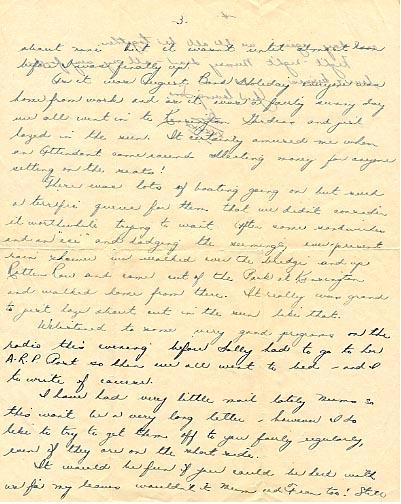 3.
about nine but it wasn't until almost ten
before I was finally up.
As it was August Bank Holiday everyone was
home from work and as it was a fairly sunny day
we all went in to Kensington Gardens and just
lazed in the sun. It certainly amused me when
an attendant came round collecting money for anyone
sitting on the seats!
There was lots of boating going on but such
a terrific queue for them that we didn't consider
it worthwhile trying to wait. After some sandwiches
and an ice and dodging the seemingly ever-present
rain shower we walked over the bridge and up
Rotten Row and came out of the Park at Kensington
and walked home from there. It really was grand
to just laze about out in the sun like that.
We listened to some very good programs on the
radio this evening before Sally had to go to her
A.R.P. Post so then we all went to bed - and I
to write of course!
I have had very little mail lately Mums so
this won't be a very long letter - however I do
like to try to get them off to you fairly regularly,
even if they are on the short side.
It would be fun if you could be here with
us for my leaves wouldn't it Mum and Fran too! Still